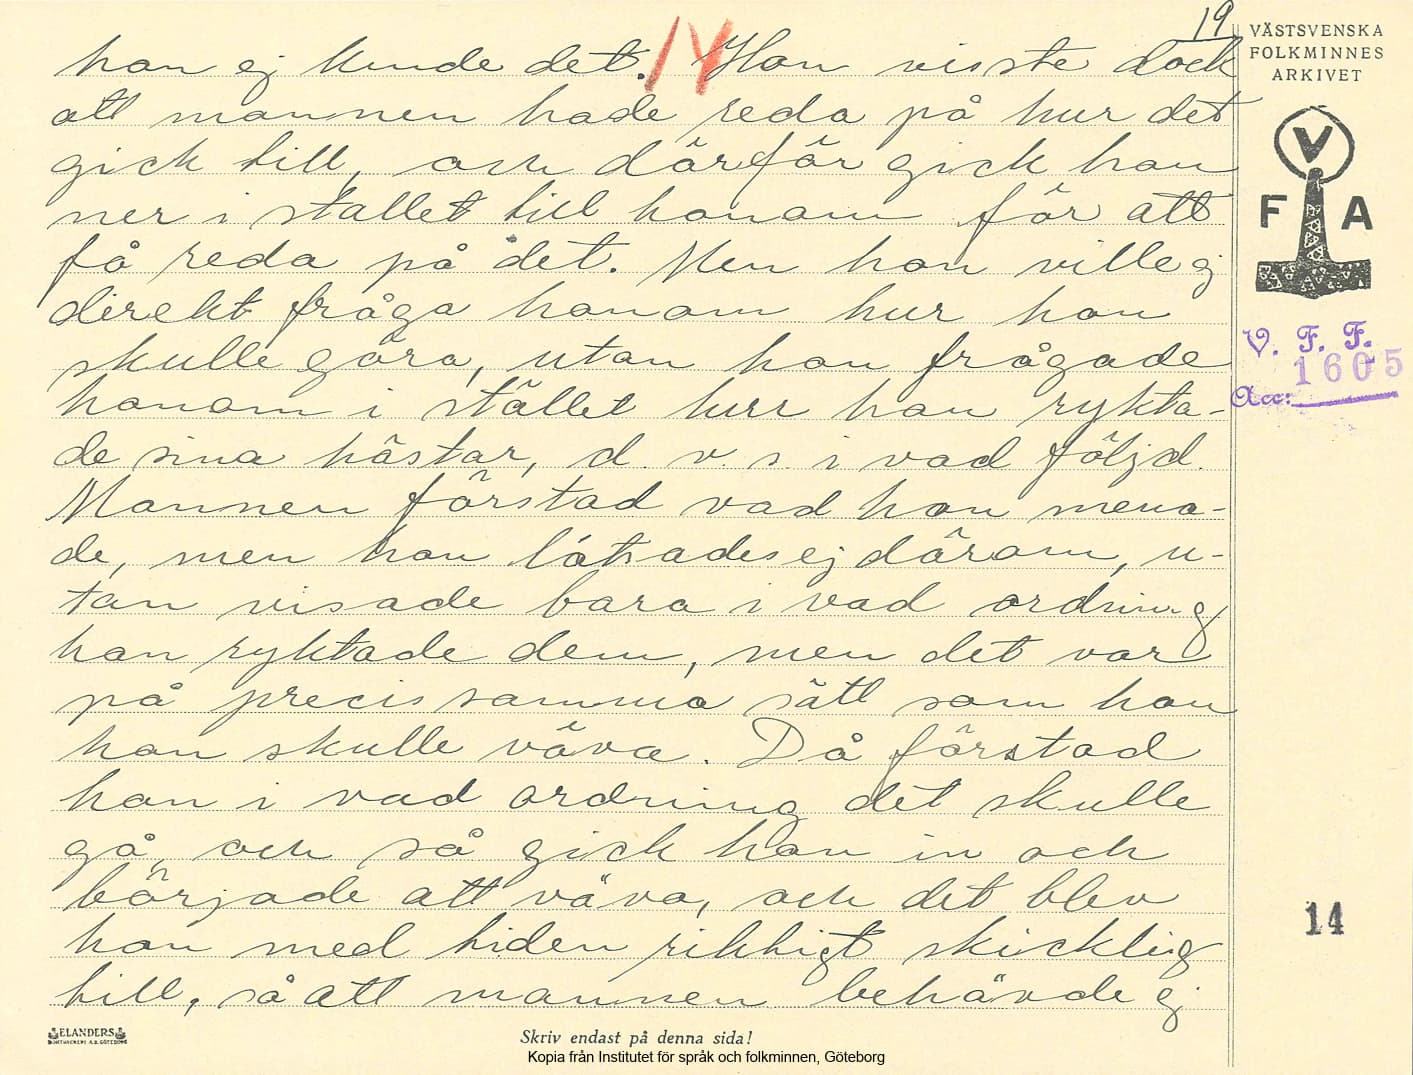 19
VÄSTSVENSKA
FOLKMINNES
ARKIVET
V
F A
V. F. F.
1605
Acc:
14
han ej kunde det. Han visste dock
att mannen hade reda på hur det
gick till, och därför gick han
ner i stallet till honom för att
få reda på det. Men han ville ej
direkt fråga honom hur han
skulle göra, utan han frågade
honom i stället hur han rykta-
de sina hästar, d. v. s. i vad följd.
Mannen förstod vad han mena-
de, men han låtsades ej därom, u-
tan visade bara i vad ordning
han ryktade dem, men det var
på precis samma sätt som han
han skulle väva. Då förstod
han i vad ordning det skulle
gå, och så gick han in och
började att väva, och det blev
han med tiden riktigt skicklig
till, så att mannen behövde ej
14
ELANDERS
BOKTRYCKERI A.B. GÖTEBORG
Skriv endast på denna sida!
Kopia från Institutet för språk och folkminnen, Göteborg